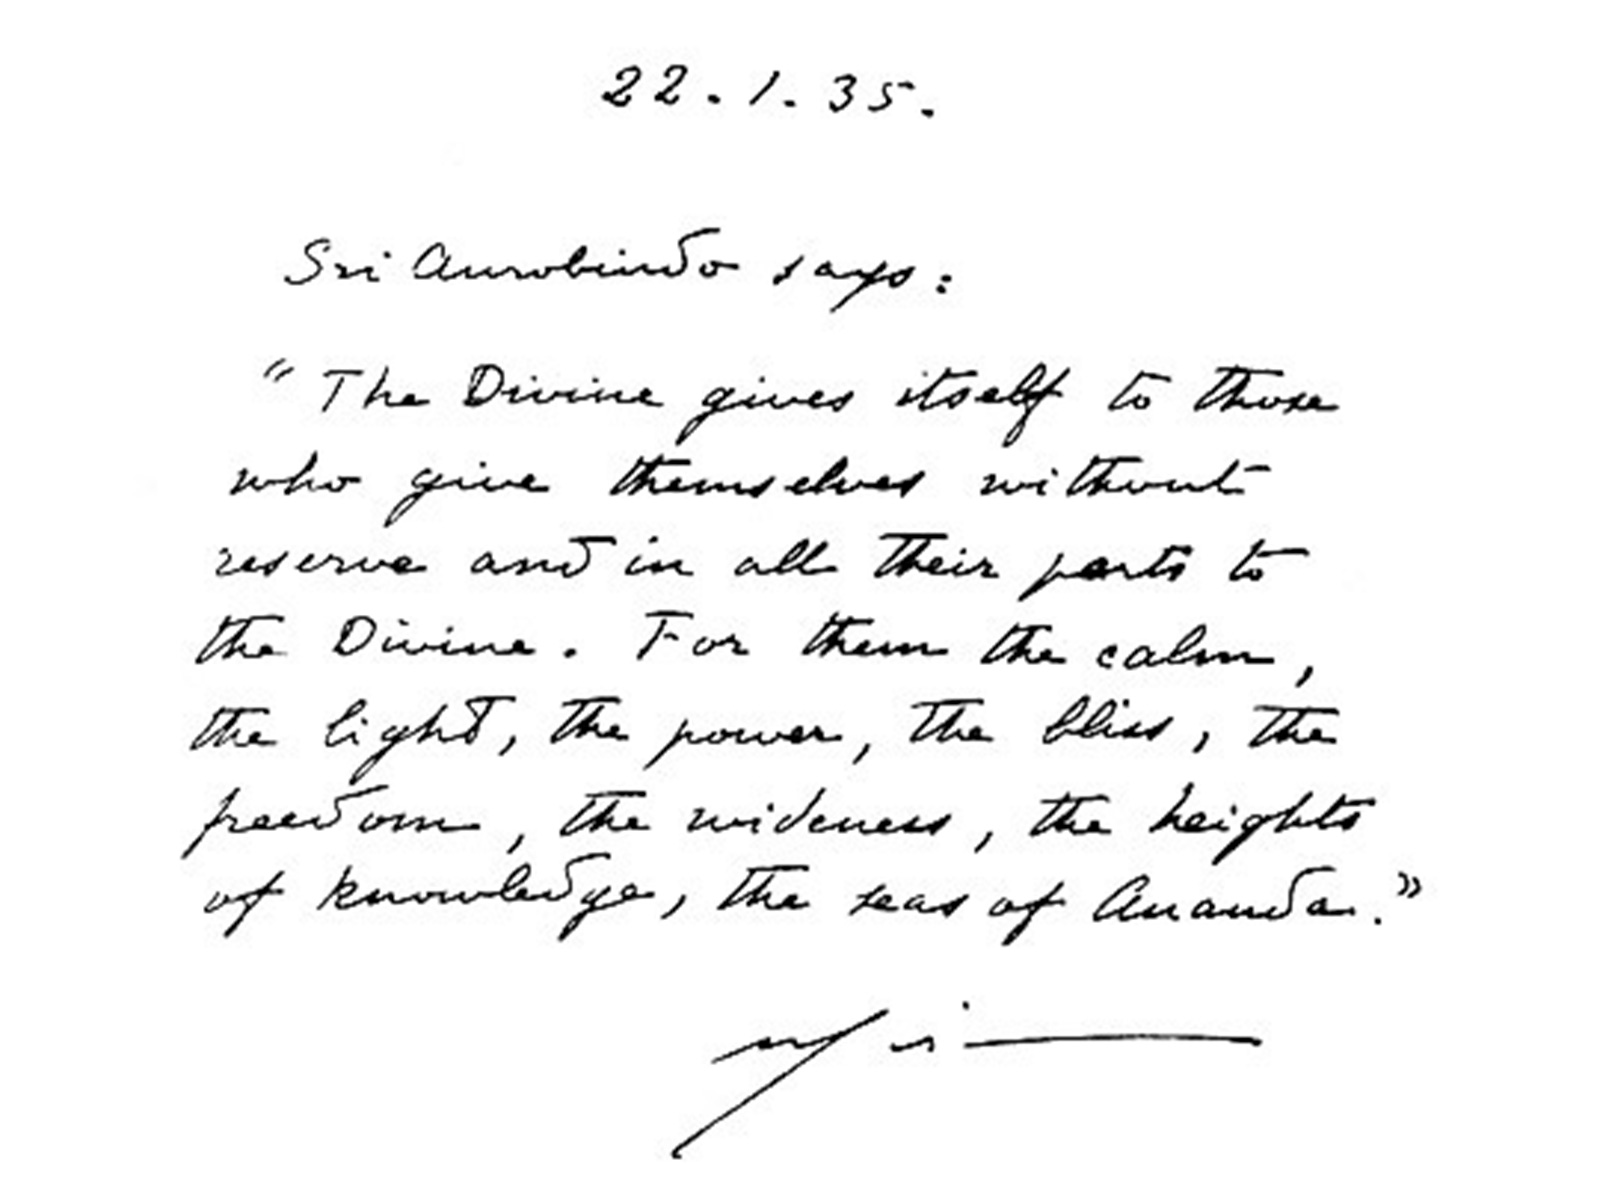 22.1.35.
Sri Aurobindo says:
“The Divine gives itself to those
who give themselves without
reserve and in all their parts to
the Divine. For them the calm,
the light, the power, the bliss, the
freedom, the wideness, the heights
of knowledge, the seas of Ananda.”